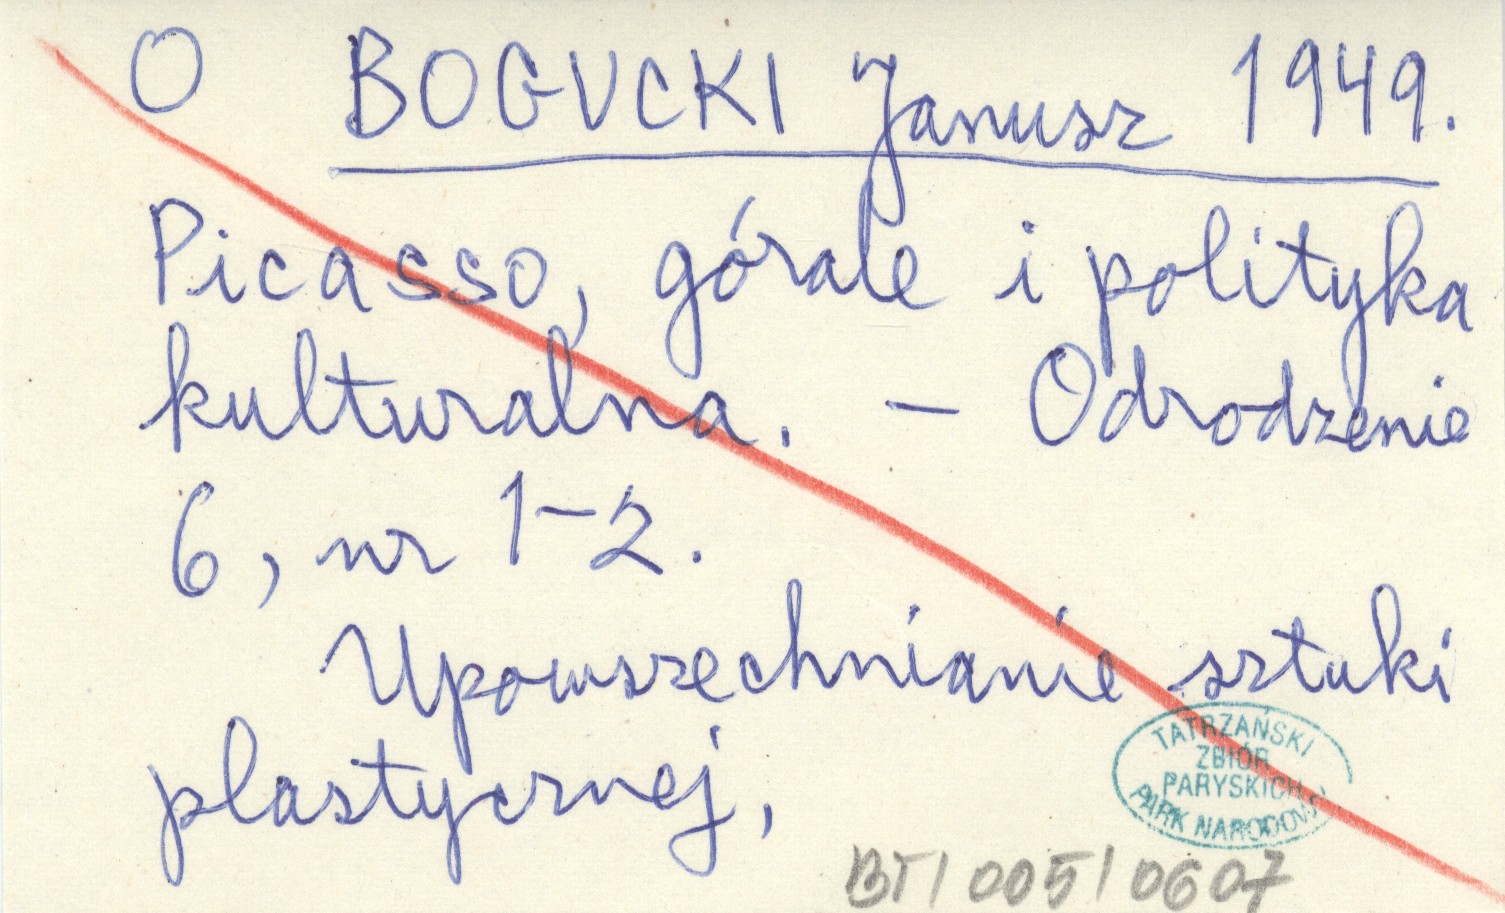 O BOGUCKI Janusz 1949.
Picasso, górale i polityka
kulturalna. – Odrodzenie
6, nr 1–2.
Upowszechnianie sztuki
plastycznej,
TATRZAŃSKI
ZBIÓR
PARYSKICH
PARK NARODOWY
BT/005/0607